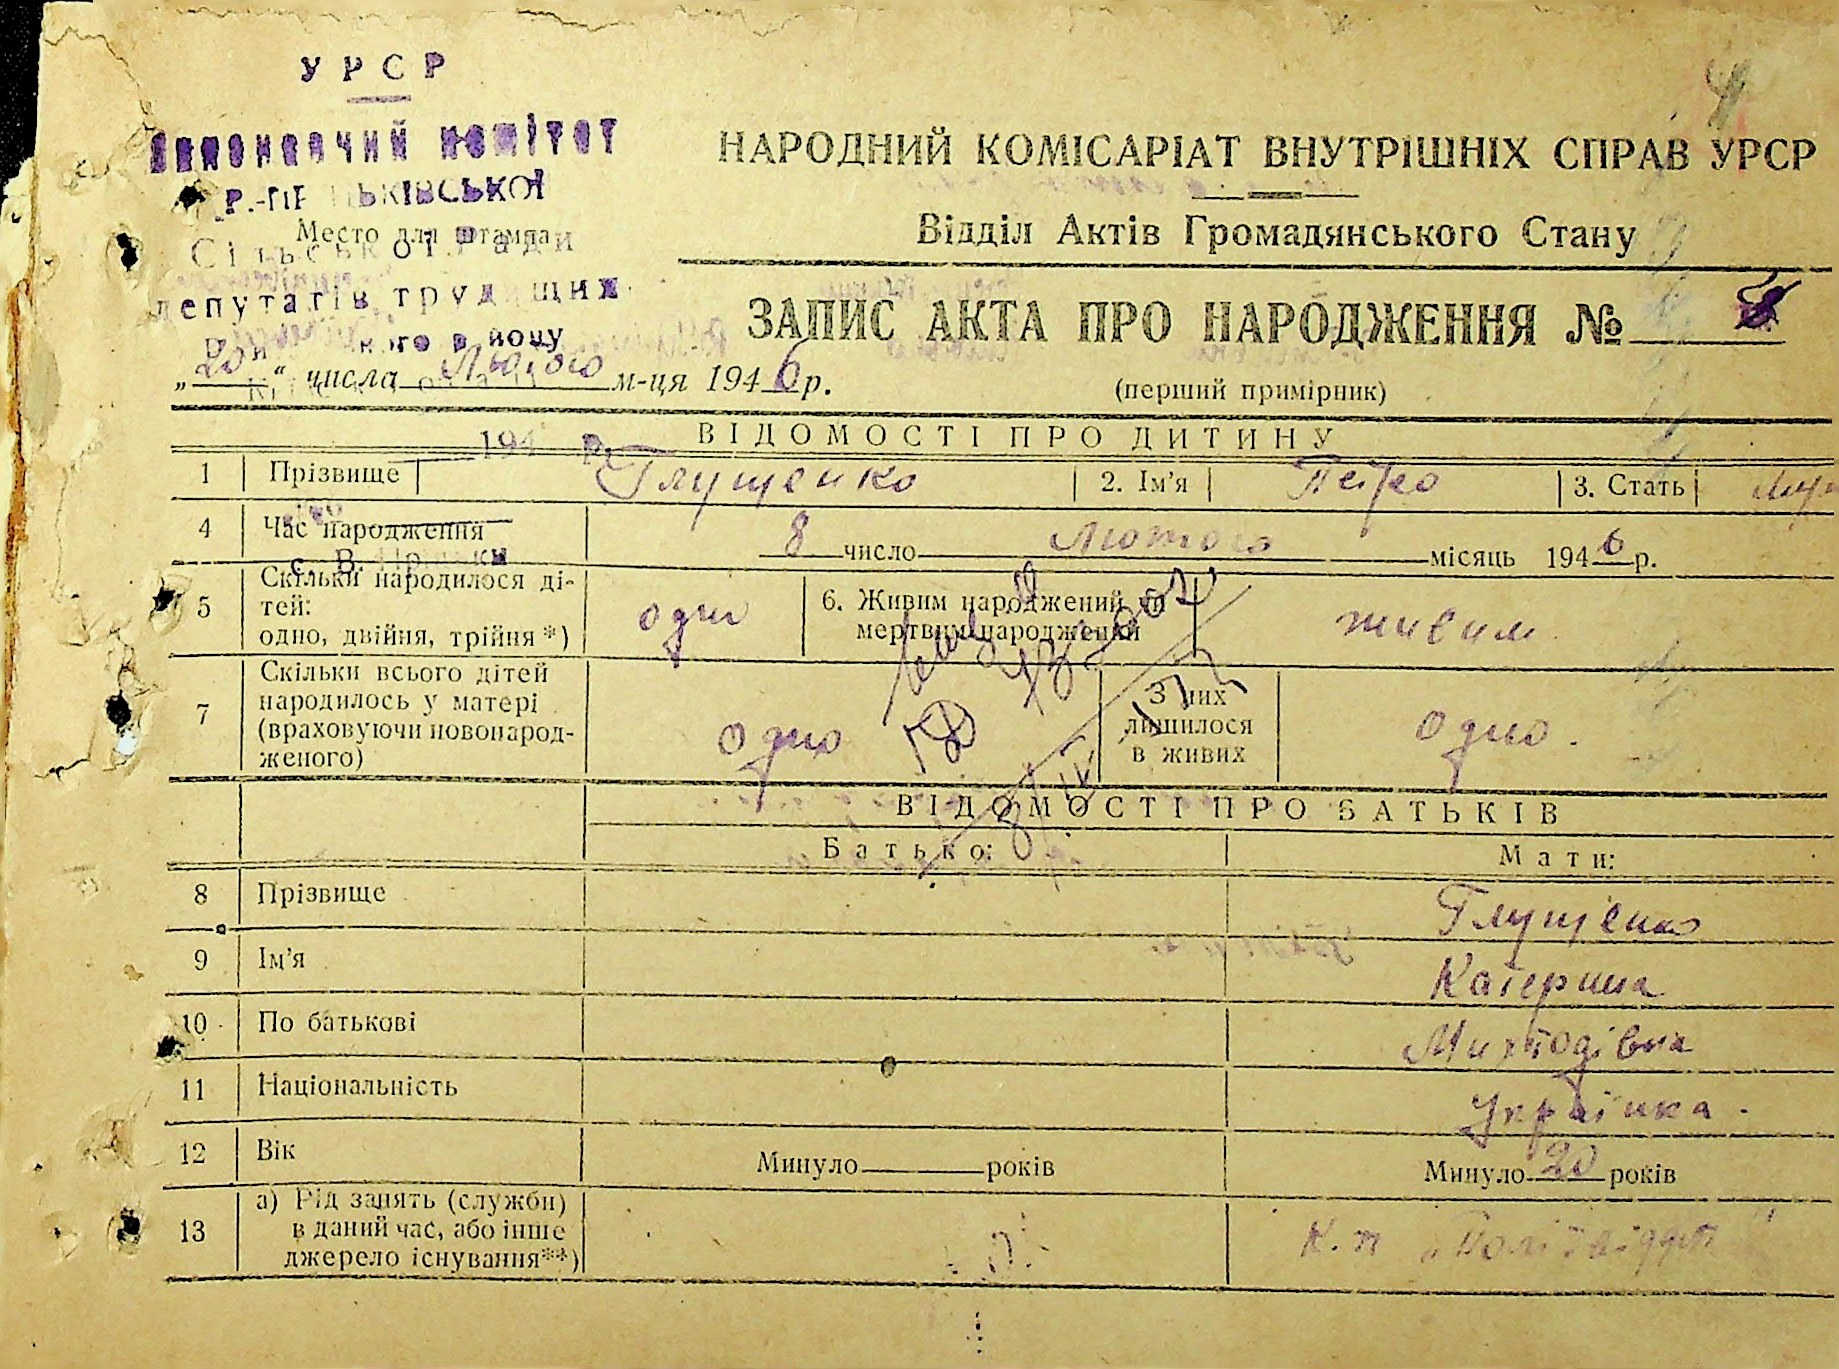 УРСР
Виконавчий комітет
Сільської Ради
депутатів трудящих
Место для штампа
НАРОДНИЙ КОМІСАРІАТ ВНУТРІШНІХ СПРАВ УРСР
Відділ Актів Громадянського Стану
ЗАПИС АКТА ПРО НАРОДЖЕННЯ №
„20“ числа Лютого м-ця 1946 р.
(перший примірник)
194 р.
ВІДОМОСТІ ПРО ДИТИНУ
1 Прізвище Глущенко 2. Ім'я Петро 3. Стать
4 Час народження 8 число Лютого місяць 1946 р.
5 Скільки народилося ді-
тей:
одно, двійня, трійня *) одно 6. Живим народжений чи
мертвим народжений живим
7 Скільки всього дітей
народилось у матері
(враховуючи новонарод-
женого) одно З них
лишилося
в живих одно.
ВІДОМОСТІ ПРО БАТЬКІВ
Батько: Мати:
8 Прізвище Глущенко
9 Ім'я Катерина
10 По батькові
11 Національність Українка.
12 Вік Минуло років Минуло 20 років
13 а) Рід занять (служби)
в даний час, або інше
джерело існування**)